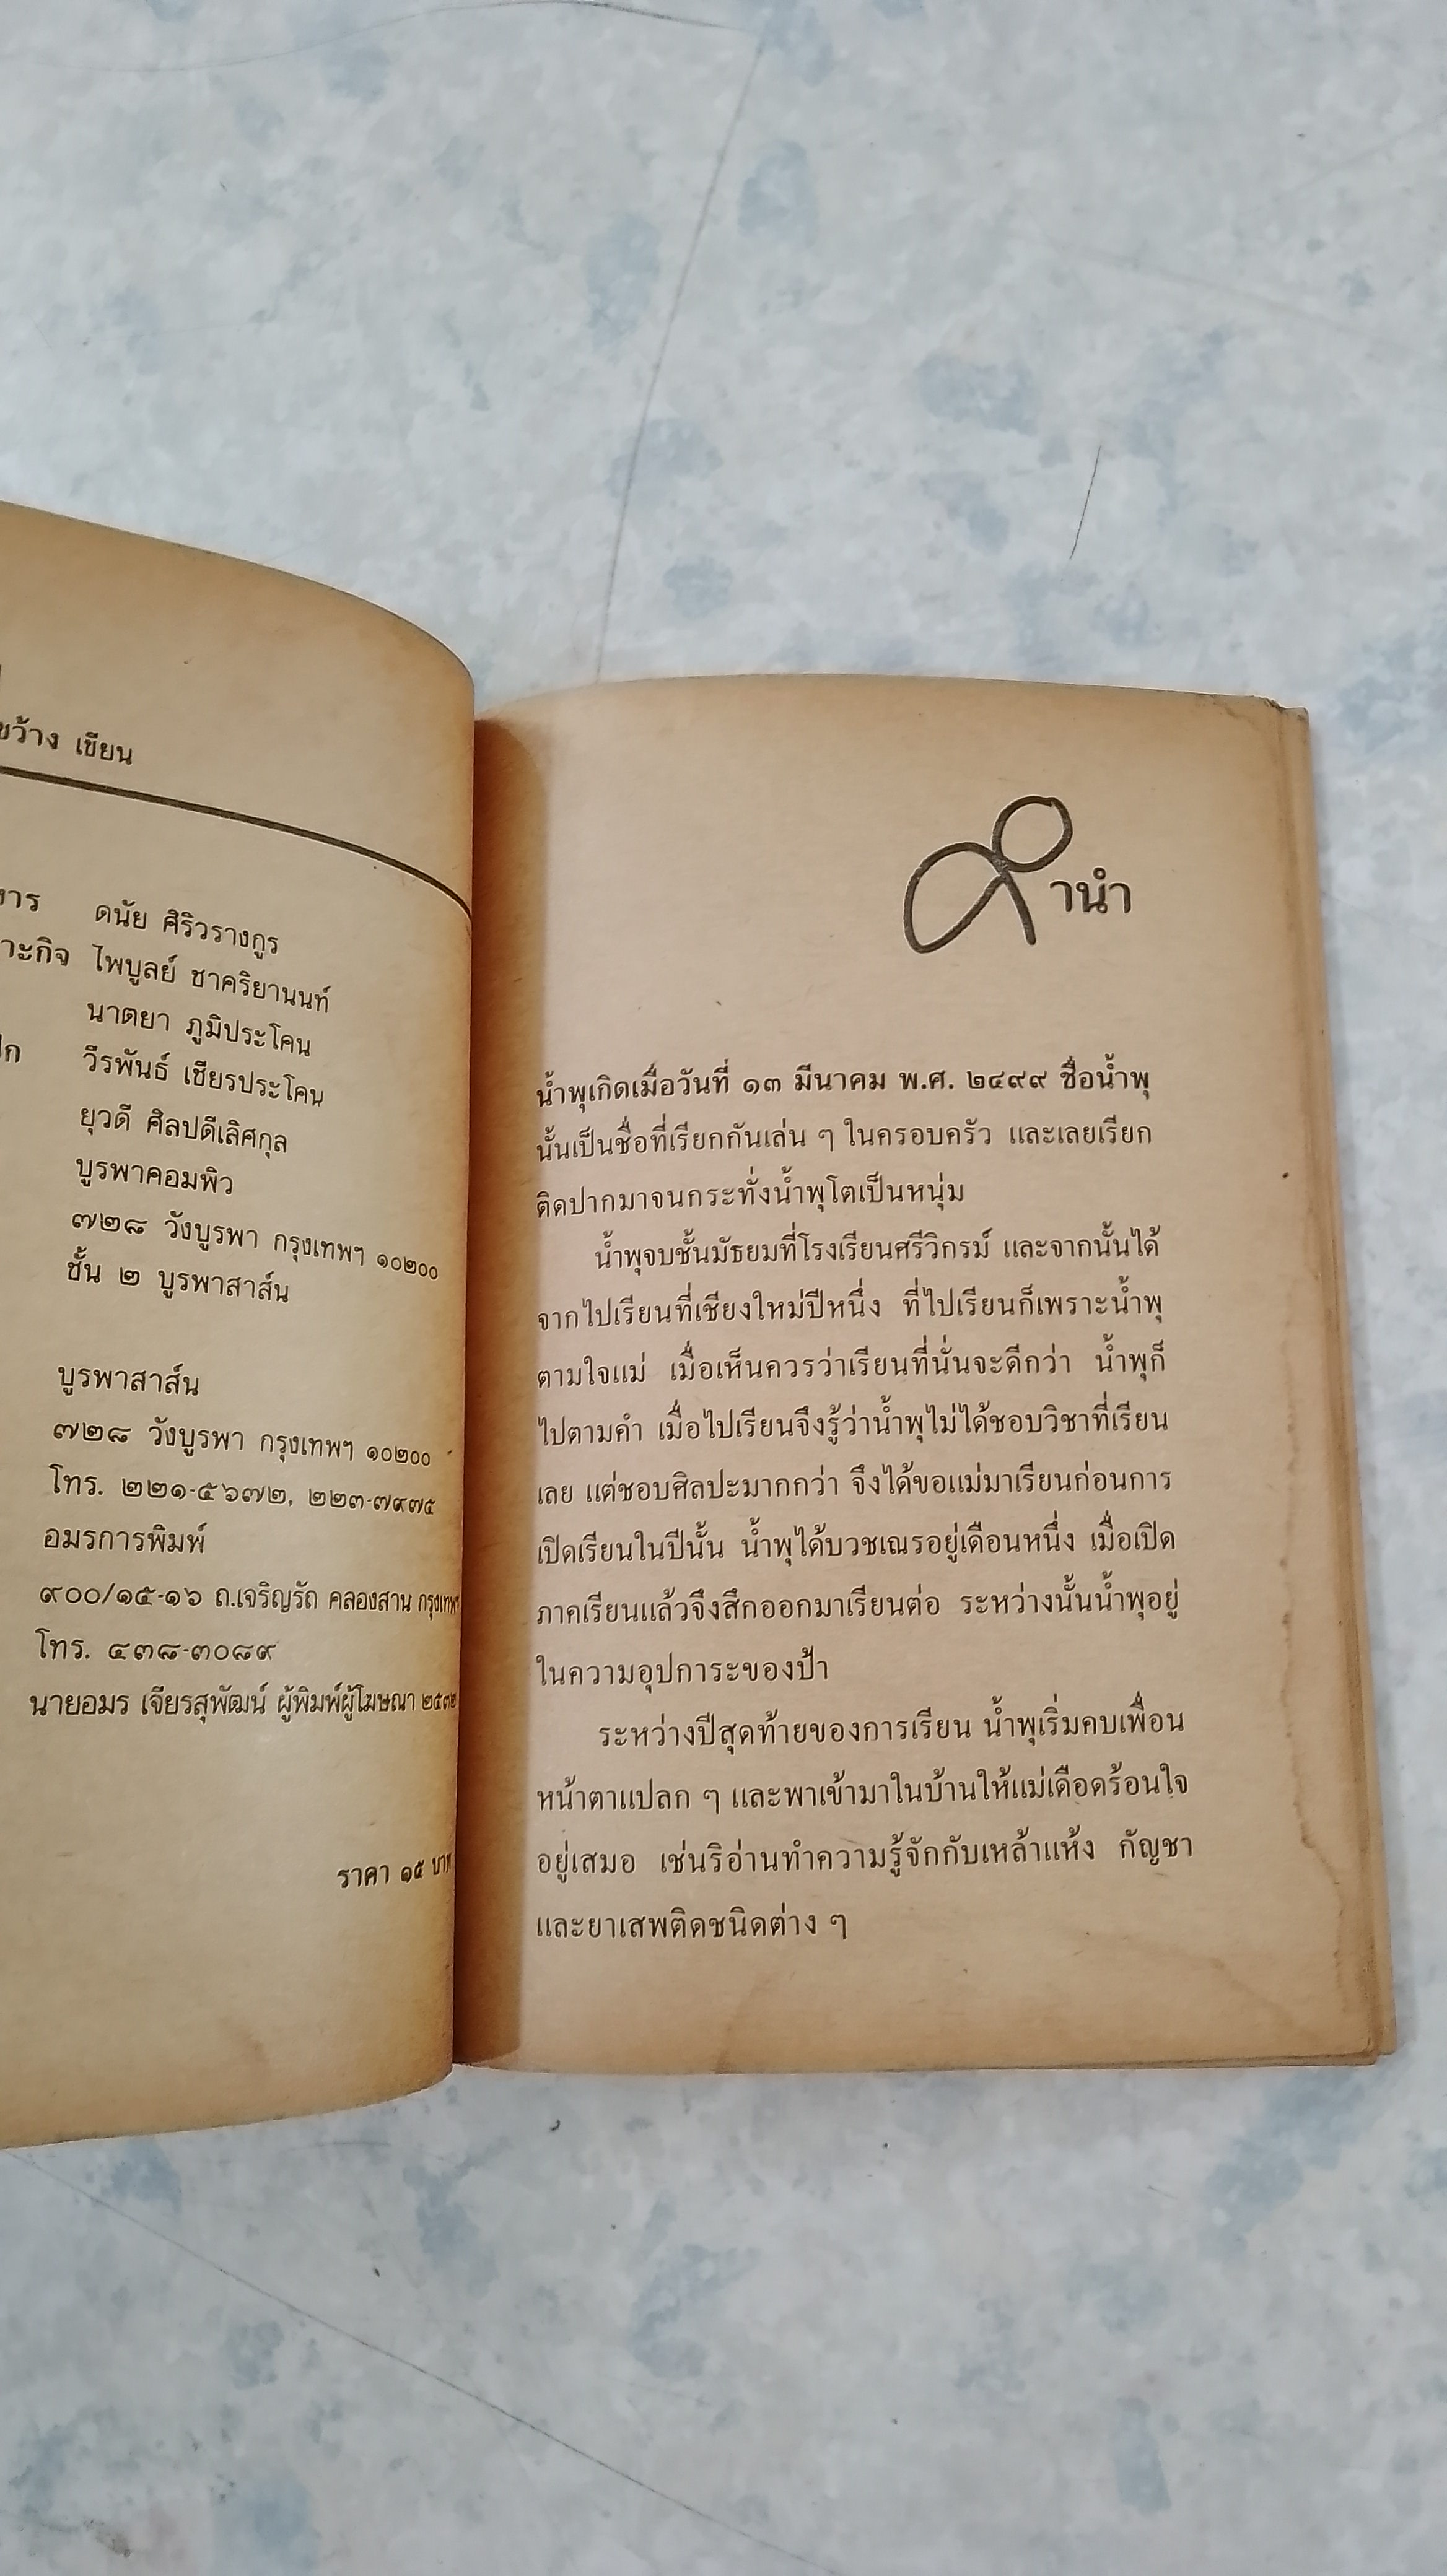 เขียน
ดนัย ศิริวรางกูร
ไพบูลย์ ชาคริยานนท์
นาตยา ภูมิประโคน
วีรพันธ์ เชียรประโคน
ยุวดี ศิลปดีเลิศกุล
บูรพาคอมพิว
๗๒๘ วังบูรพา กรุงเทพฯ ๑๐๒๐๐
ชั้น ๒ บูรพาสาส์น
บูรพาสาส์น
๗๒๘ วังบูรพา กรุงเทพฯ ๑๐๒๐๐
โทร. ๒๒๑-๕๖๗๒, ๒๒๓-๗๙๗๕
อมรการพิมพ์
๙๐๐/๑๕-๑๖ ถ.เจริญรัถ คลองสาน กรุงเทพฯ
โทร. ๔๓๘-๓๐๘๙
นายอมร เจียรสุพัฒน์ ผู้พิมพ์ผู้โฆษณา ๒๕๓๒
ราคา ๑๕ บาท
คำนำ
น้ำพุเกิดเมื่อวันที่ ๑๓ มีนาคม พ.ศ. ๒๔๙๙ ชื่อน้ำพุ
นั้นเป็นชื่อที่เรียกกันเล่น ๆ ในครอบครัว และเลยเรียก
ติดปากมาจนกระทั่งน้ำพุโตเป็นหนุ่ม
น้ำพุจบชั้นมัธยมที่โรงเรียนศรีวิกรม์ และจากนั้นได้
จากไปเรียนที่เชียงใหม่ปีหนึ่ง ที่ไปเรียนก็เพราะน้ำพุ
ตามใจแม่ เมื่อเห็นควรว่าเรียนที่นั่นจะดีกว่า น้ำพุก็
ไปตามคำ เมื่อไปเรียนจึงรู้ว่าน้ำพุไม่ได้ชอบวิชาที่เรียน
เลย แต่ชอบศิลปะมากกว่า จึงได้ขอแม่มาเรียนก่อนการ
เปิดเรียนในปีนั้น น้ำพุได้บวชเณรอยู่เดือนหนึ่ง เมื่อเปิด
ภาคเรียนแล้วจึงสึกออกมาเรียนต่อ ระหว่างนั้นน้ำพุอยู่
ในความอุปการะของป้า
ระหว่างปีสุดท้ายของการเรียน น้ำพุเริ่มคบเพื่อน
หน้าตาแปลก ๆ และพาเข้ามาในบ้านให้แม่เดือดร้อนใจ
อยู่เสมอ เช่นริอ่านทำความรู้จักกับเหล้าแห้ง กัญชา
และยาเสพติดชนิดต่าง ๆ